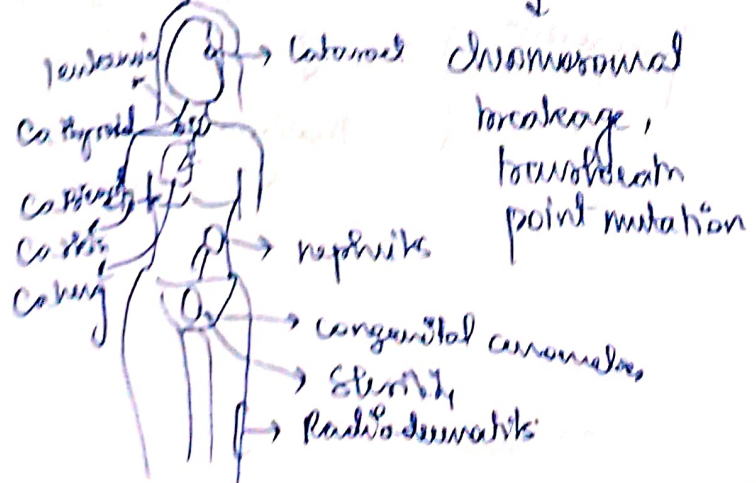 leukaemia
Ca thyroid
Ca breast
Ca skin
Ca lung
Cataract
nephritis
congenital anomalies
Sterility
Radiodermatitis
chromosomal
breakage,
point mutation